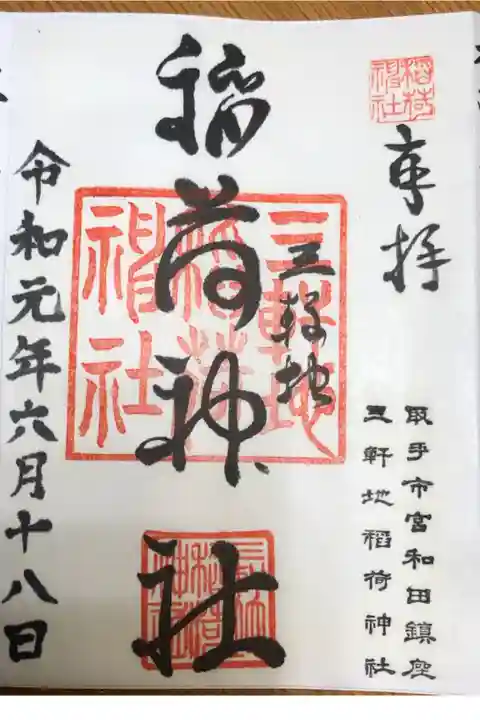 稲荷神社
奉拝
取手市宮和田鎮座
三軒地稲荷神社
三軒地
稲荷神社
三軒地稲荷神社
令和元年六月十八日